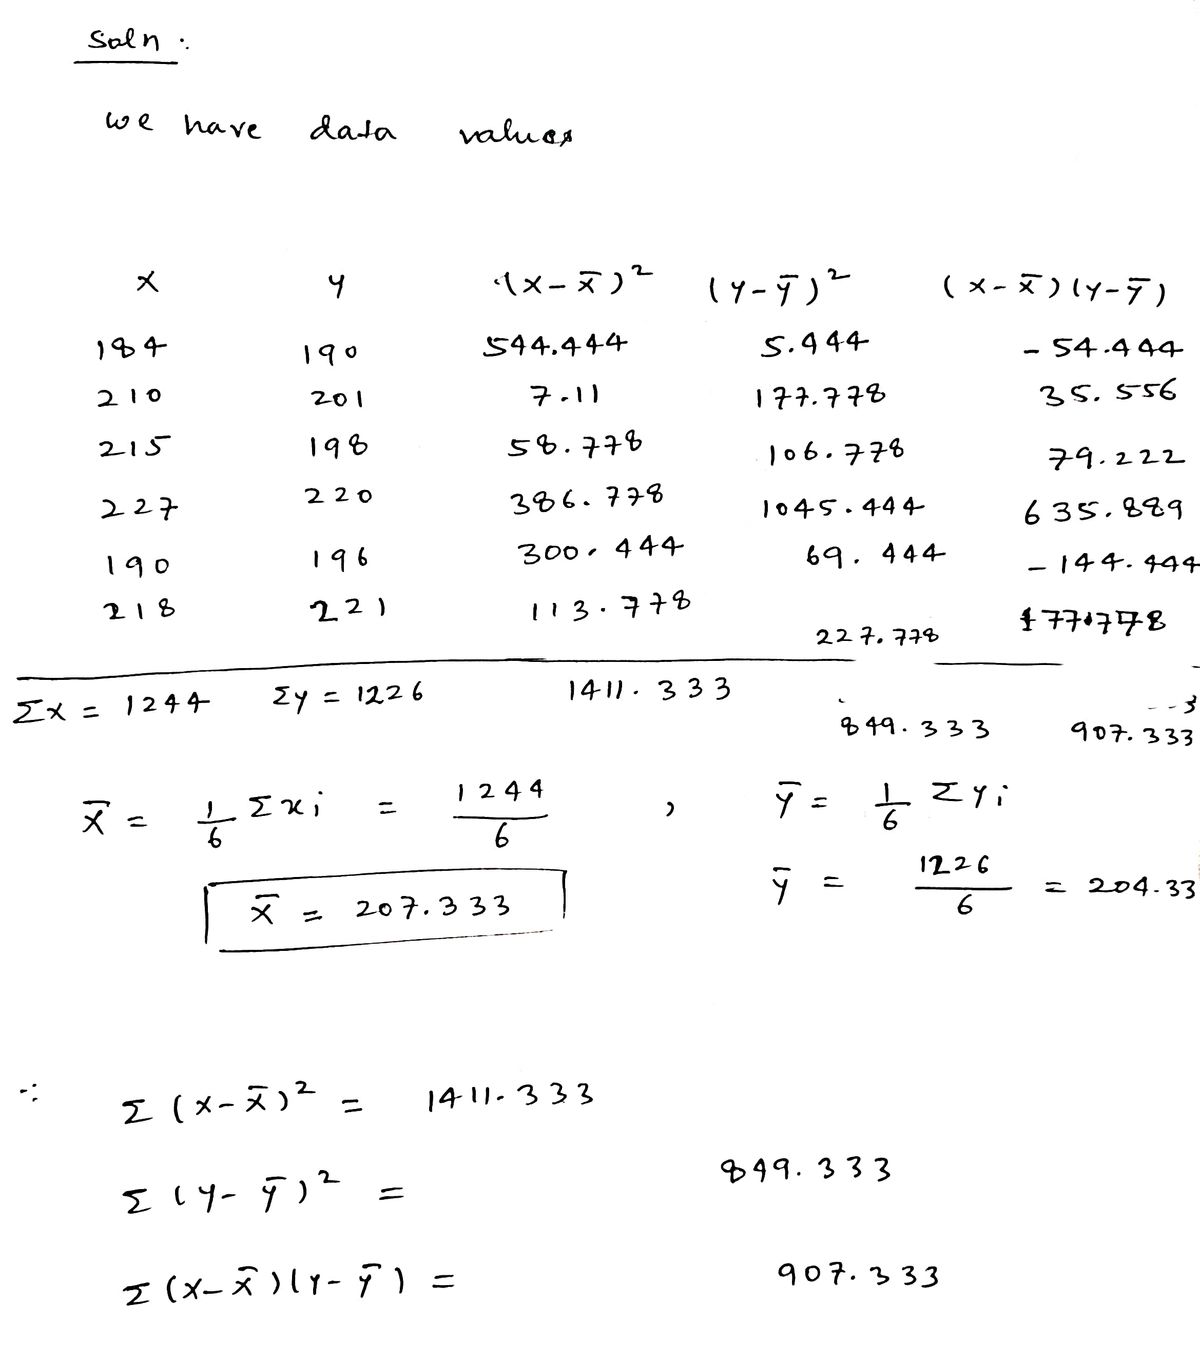 Soln :
we have data values
x y (x-x̄)² (y-ȳ)² (x-x̄)(y-ȳ)
184 190 544.444 5.444 -54.444
210 201 7.11 177.778 35.556
215 198 58.778 106.778 79.222
227 220 386.778 1045.444 635.889
190 196 300.444 69.444 -144.444
218 221 113.778 227.778 177.778
Σx = 1244 Σy = 1226 1411.333 849.333 907.333
x̄ = 1/6 Σxi = 1244/6 , ȳ = 1/6 Σyi
x̄ = 207.333 ȳ = 1226/6 = 204.33
∴ Σ(x-x̄)² = 1411.333
Σ(y-ȳ)² = 849.333
Σ(x-x̄)(y-ȳ) = 907.333